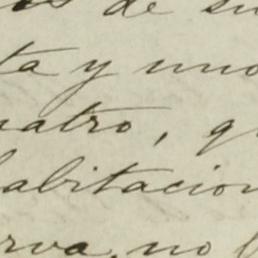 de su
ta y uno
uatro, q
habitacion
rva, no l